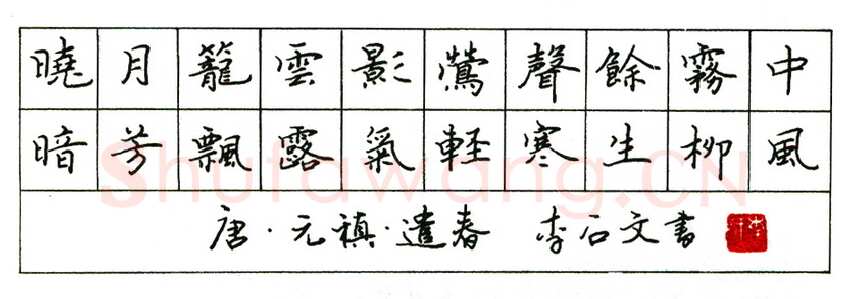 曉月籠雲影鶯聲餘霧中
暗芳飄露氣輕寒生柳風
唐·元稹·遣春 李石文書
Shufawang.CN